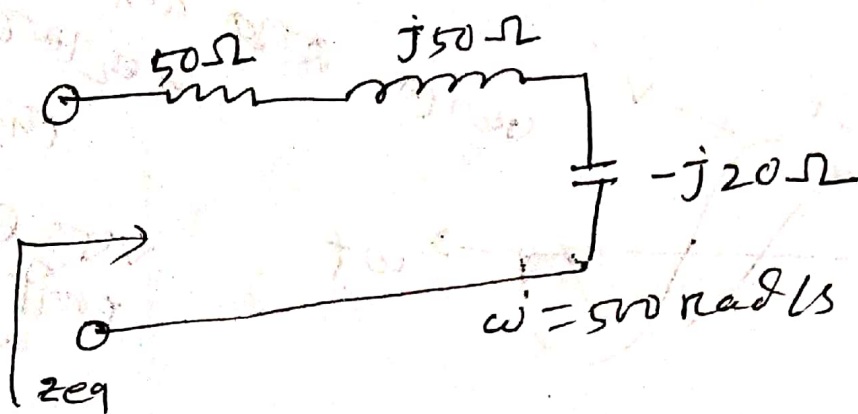 50Ω
j50Ω
-j20Ω
ω=500 rad/s
zeq